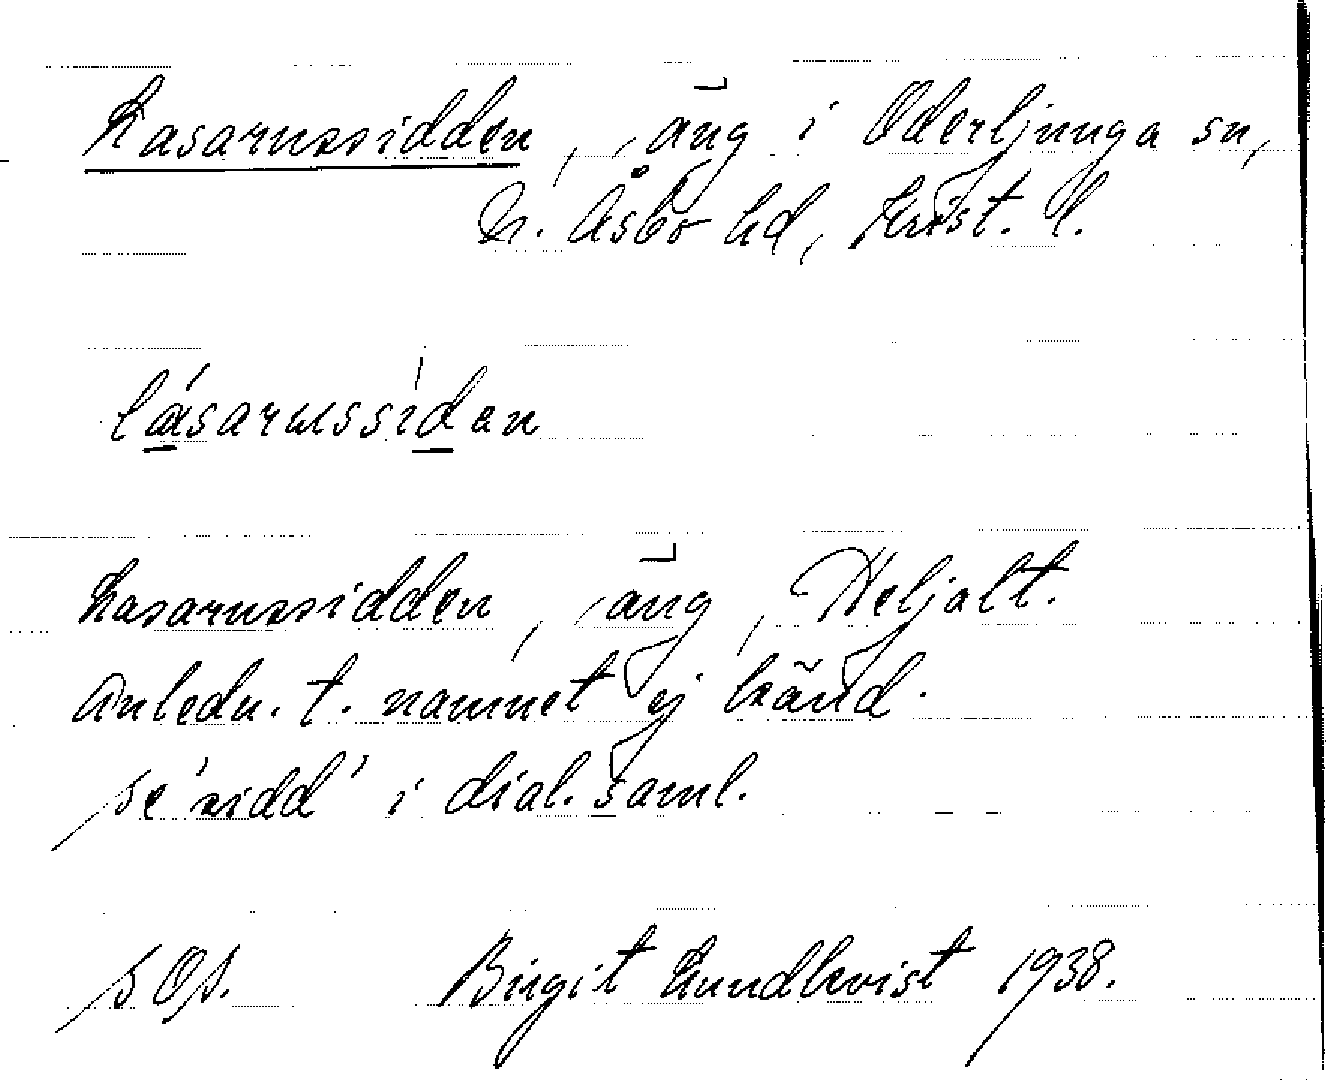 Kasarussidden, äng i Oderljunga sn,
N. Åsbo hd, Krist. l.
lásarussídan
Kasarussidden, äng, Heljalt.
Anledn. t. namnet ej känd.
Se 'sidd' i dial. saml.
Birgit Lundkvist 1938.